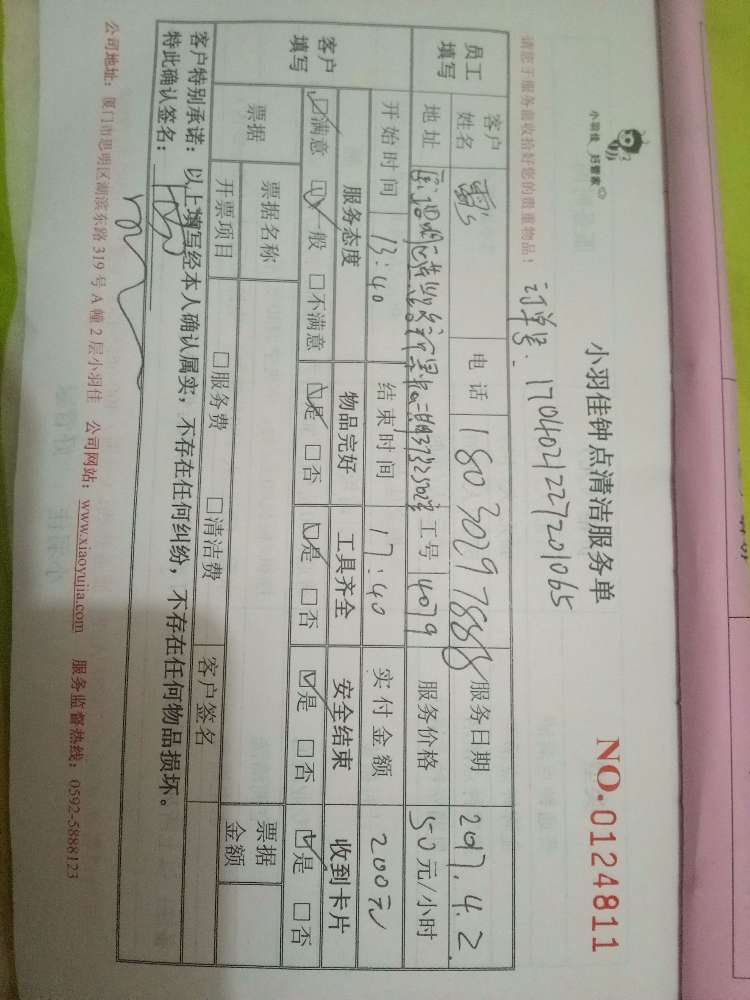 小羽佳 好管家
小羽佳钟点清洁服务单
NO.0124811
请您于服务前收拾好您的贵重物品！
订单号. 1704021227201065
员工填写
客户姓名
电话 18030297888
服务日期 2017.4.2
地址
工号 14079
服务价格 50元/小时
开始时间 13:40
结束时间 17:40
实付金额 200元
客户填写
服务态度 物品完好 工具齐全 安全结束 收到卡片
☑满意 ☑一般 □不满意 ☑是 □否 ☑是 □否 ☑是 □否 ☑是 □否
票据
票据名称
票据金额
开票项目 □服务费 □清洁费
客户签名
客户特别承诺：以上填写经本人确认属实，不存在任何纠纷，不存在任何物品损坏。
特此确认签名：
公司地址：厦门市思明区湖滨东路319号A幢2层小羽佳 公司网站：www.xiaoyujia.com 服务监督热线：0592-5888123